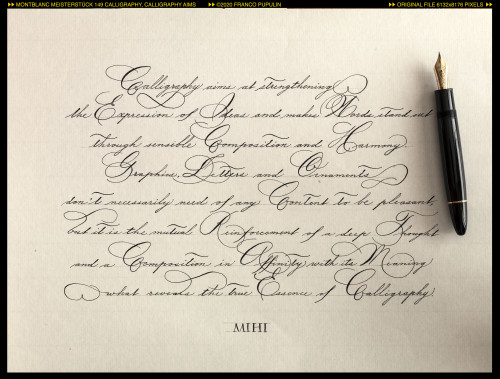 MONTBLANC MEISTERSTÜCK 149 CALLIGRAPHY, CALLIGRAPHY AIMS ©2020 FRANCO PUPULIN ORIGINAL FILE 8132x8176 PIXELS
Calligraphy aims at strengthening
the Expression of Ideas and makes Words stand out
through sensible Composition and Harmony.
Graphics, Letters and Ornaments
don't necessarily need of any Content to be pleasant,
but it is the mutual Reinforcement of a deep Thought
and a Composition in Affinity with its Meaning
what reveals the true Essence of Calligraphy.
MIHI